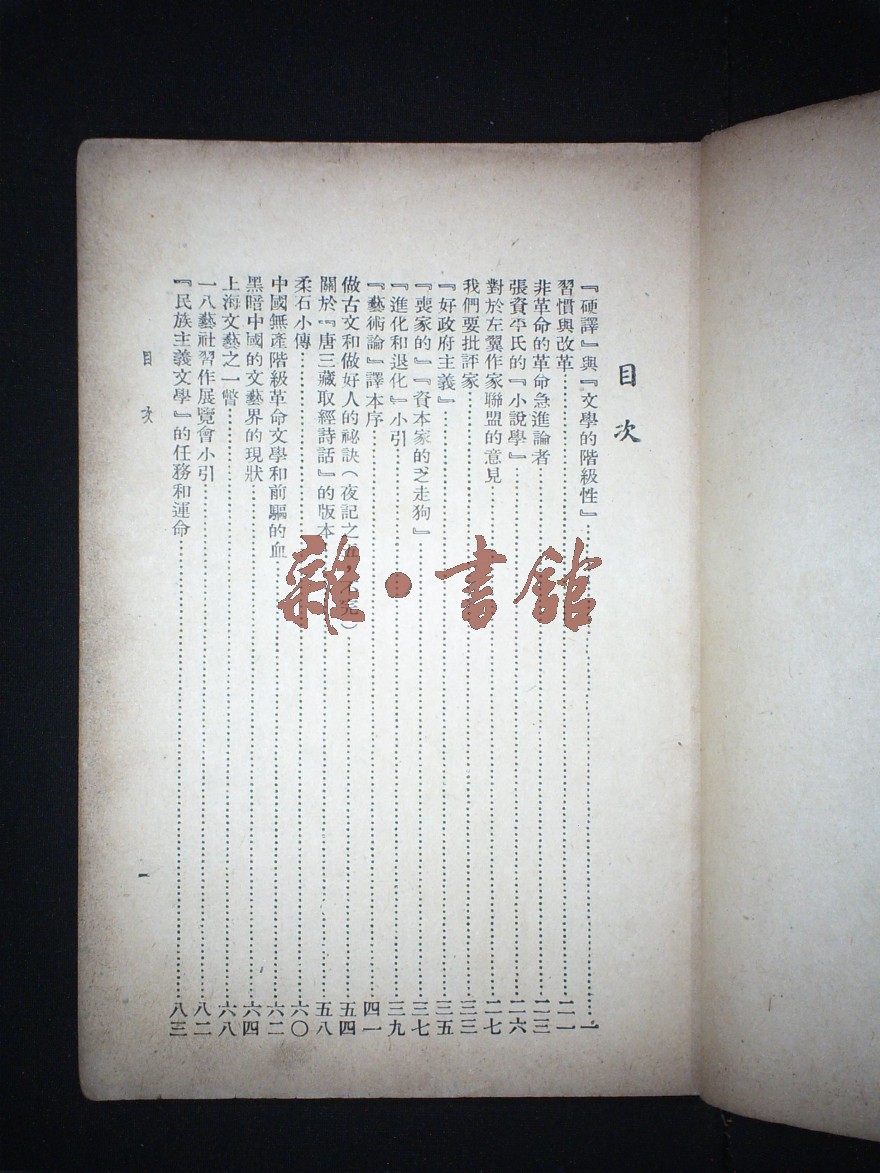 目次
『硬譯』與『文學的階級性』……一
習慣與改革……二一
非革命的革命急進論者……二三
張資平氏的『小說學』……二六
對於左翼作家聯盟的意見……二七
我們要批評家……三三
『好政府主義』……三五
『喪家的』『資本家的乏走狗』……三七
『進化和退化』小引……三九
『藝術論』譯本序……四一
做古文和做好人的祕訣(夜記之五)……五四
關於『唐三藏取經詩話』的版本……五八
柔石小傳……六〇
中國無產階級革命文學和前驅的血……六二
黑暗中國的文藝界的現狀……六四
上海文藝之一瞥……六八
一八藝社習作展覽會小引……八二
『民族主義文學』的任務和運命……八三
目次
一
雜·書館